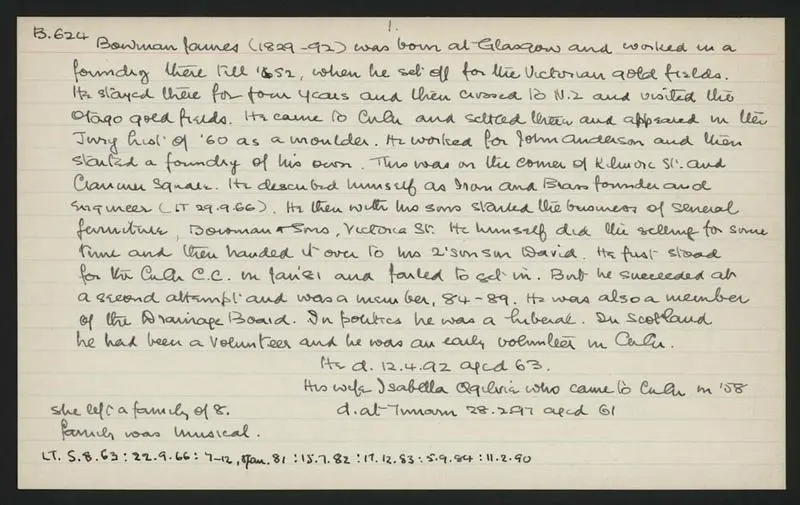 1.
B.624 Bowman James (1829-92) was born at Glasgow and worked in a
foundry there till 1852, when he set off for the Victorian gold fields.
He stayed there for four years and then crossed to N.Z and visited the
Otago gold fields. He came to ChCh and settled there and appeared in the
Jury List of '60 as a moulder. He worked for John Anderson and then
started a foundry of his own. This was on the corner of Kilmore St. and
Cranmer Square. He described himself as Iron and Brass founder and
Engineer (LT 29.9.66). He then with his sons started the business of general
furniture, Bowman & Sons, Victoria St. He himself did the selling for some
time and then handed it over to his 2 sons David. He first stood
for the ChCh C.C. in Jan '81 and failed to get in. But he succeeded at
a second attempt and was a member, 84-89. He was also a member
of the Drainage Board. In politics he was a Liberal. In Scotland
he had been a Volunteer and he was an early volunteer in ChCh.
He d. 12.4.92 aged 63.
His wife Isabella Ogilvie who came to ChCh in '58
she left a family of 8. d. at 28.2.97 aged 61
family was musical.
LT. 5.8.63 : 22.9.66 : 7-12, Jan. 81 : 15.7.82 : 17.12.83 : 5.9.84 : 11.2.90